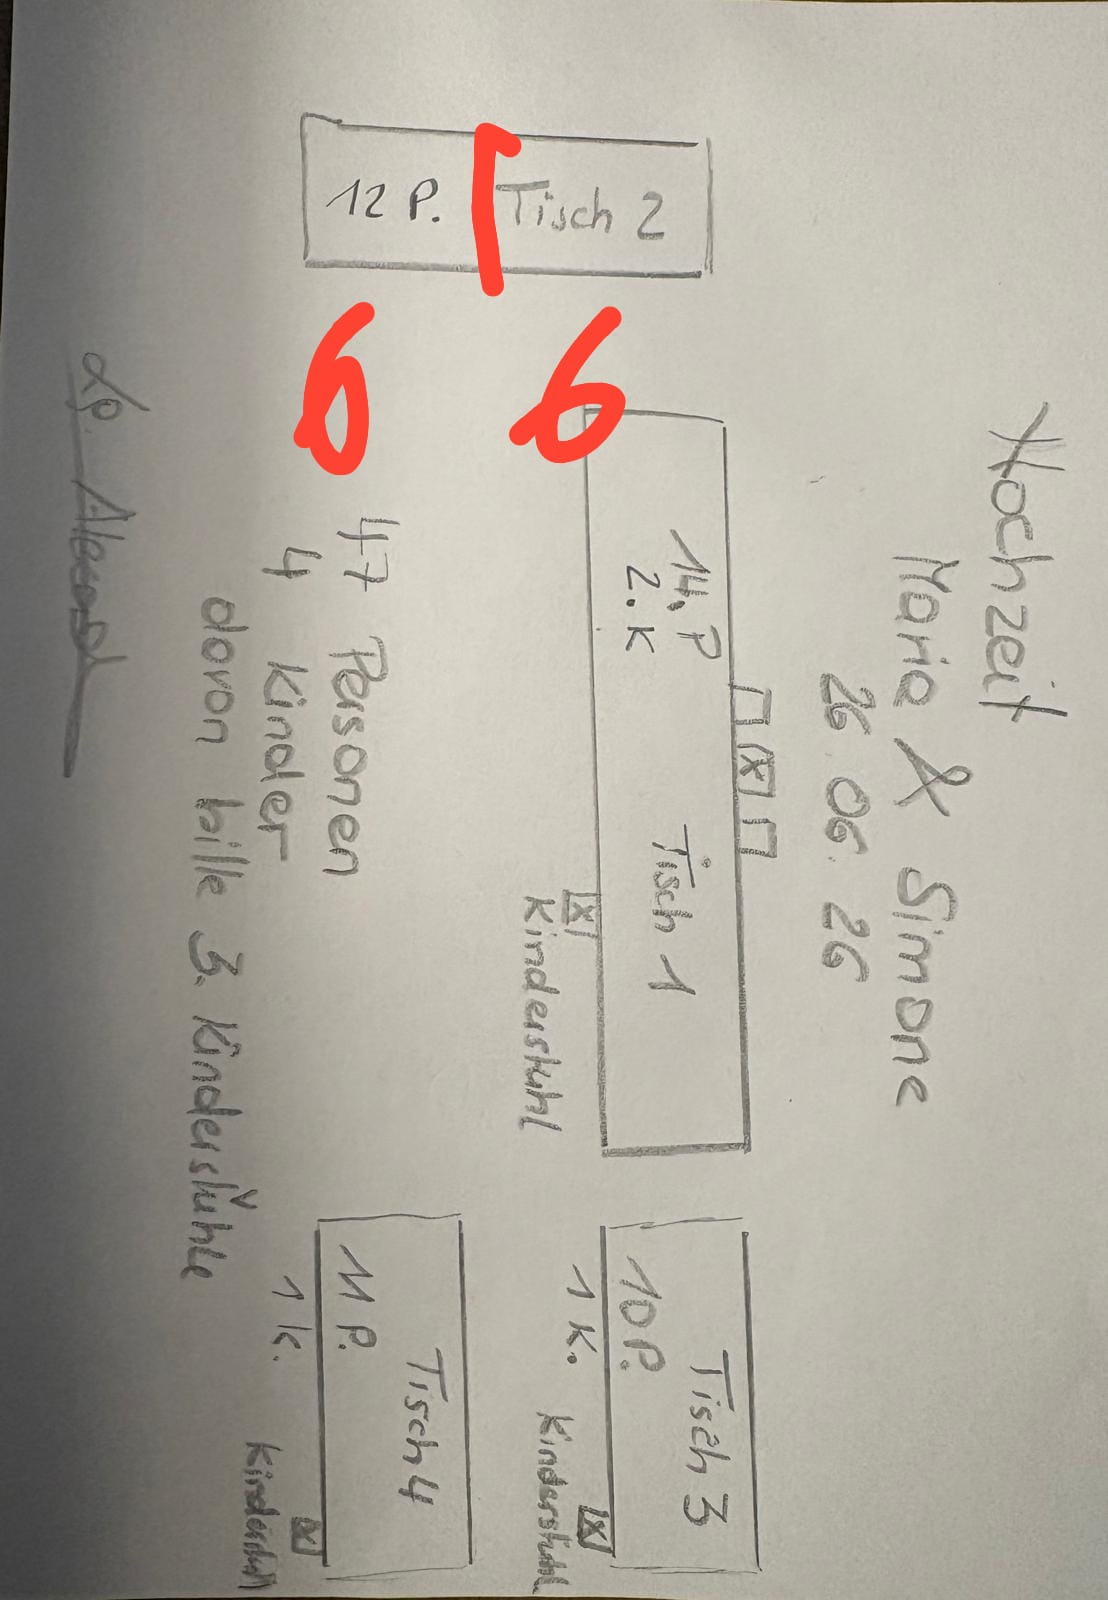 Hochzeit
Maria & Simone
26.06.26
14. P
2. K
Tisch 1
X
X
Kinderstuhl
12 P.
Tisch 2
6
6
Tisch 3
10 P.
1 K.
Kinderstuhl
X
Tisch 4
11 P.
1 K.
Kinderstuhl
X
47 Personen
4 Kinder
davon bitte 3. Kinderstühle